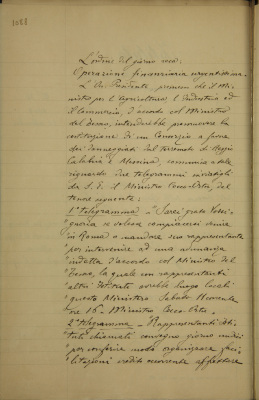 1068
L'ordine del giorno reca:
Operazioni finanziarie urgentissime.
Il Presidente, premesso che il Mi-
nistro per l'Agricoltura l'Industria ed
il Commercio, d'accordo col Ministro
del Tesoro, intenderebbe promuovere la
costituzione di un Consorzio a favore
dei danneggiati dal terremoto di Reggio
Calabria e Messina, comunica a tale
riguardo due telegrammi
da S. E. il Ministro Cocco-Ortu, del
tenore seguente:
1° telegramma = Sarei grato Vossi-
gnoria se volesse compiacersi venire
in Roma o mandare suo rappresentante
per intervenire ad una adunanza
indetta d'accordo col Ministro del
Tesoro, la quale con rappresentanti
altri Istituti avrebbe luogo locali
questo Ministero Sabato
ore 16 - Ministro Cocco-Ortu.
2° telegramma - Rappresentanti Isti-
tuti chiamati convegno giorno undici
per conferire modo organizzare faci-
litazioni credito occorrente affrettare